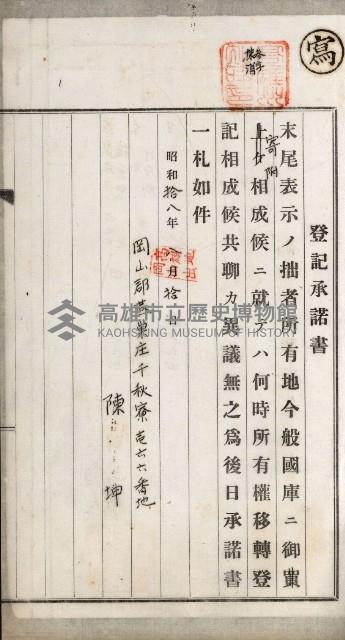 寫
登記承諾書
末尾表示ノ拙者所有地今般國庫ニ御買
上ケ相成候ニ就テハ何時所有權移轉登
寄附
記相成候共聊カ異議無之爲後日承諾書
一札如件
昭和拾八年 月拾 日
岡山郡燕巢庄千秋寮壱六六番地
陳 坤
高雄市立歷史博物館
KAOHSIUNG MUSEUM OF HISTORY